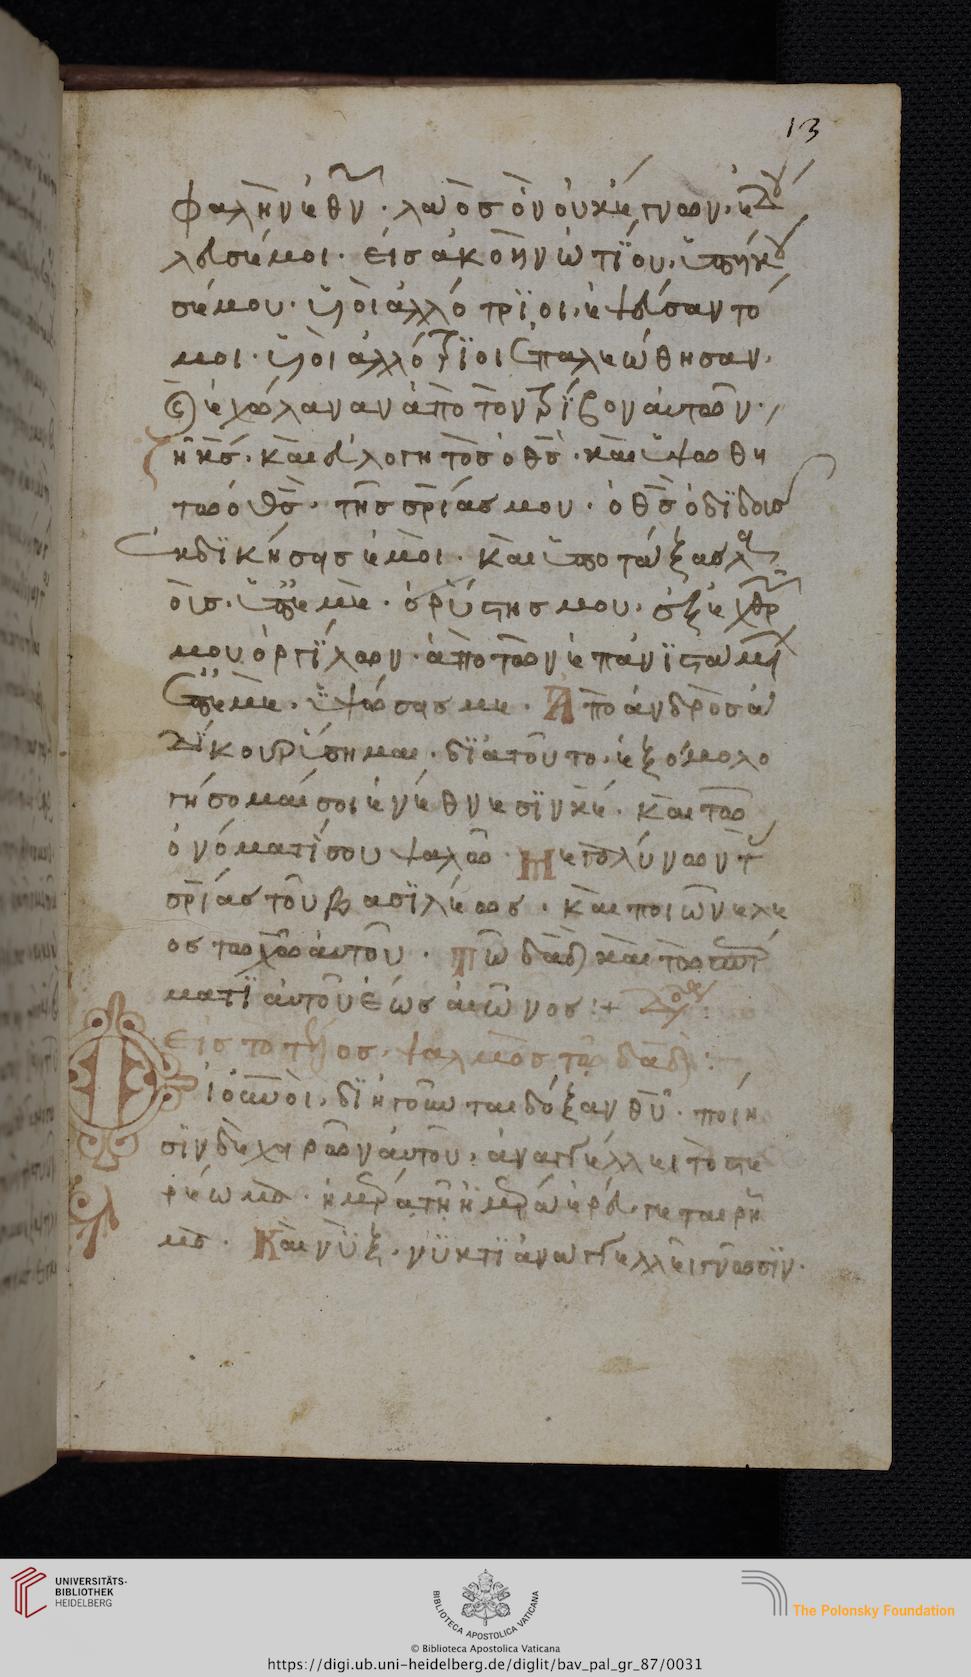 13
φαλὴν ἐθν̃· λαὸσ ὃν οὐκ ἔγνων· ἐδού
λευσέ μοι· εἰσ ἀκοὴν ὠτΐου· ὑπήκου
σέ μου· ὑϊοὶ ἀλλότρϊοι· ἐψεύσαντό
μοι· ὑϊοὶ ἀλλότρϊοι ἐπαλεώθησαν·
κ(αὶ) ἐχώλαναν ἀπὸ τὸν τρίβον ἀυτῶν·
ζῆ κ̅σ̅· κὰι ἐυλογητὸσ ὁ θ̅σ̅· κὰι ὑψωθή
τω ὁ θ̅σ̅· τῆσ σ̅ρ̅ίασ μου· ὁ θ̅σ̅ ὁ δϊδοὺσ
ἐκδϊκήσησ ἐμοὶ· κὰι ὑποτάξασ λα
οὶσ· ὑπ' ἐμὲ· ὁ ῥύστησ μου· ἐξ ἐχθρῶν
μου ὀργΐλων· ἀπὸ τῶν ἐπανϊσταμέν
ἐπ' ἐμὲ· ὑψώσησ με· Ἀπὸ ἀνδρὸσ ἀ
δίκου ῥύση με· δϊὰ τοῦτο· ἐξομολο
γήσομαί σοι ἐν ἔθνεσϊν κ̅ε̅· κὰι τῶ
ὀνόματί σου ψαλῶ· Μεγαλύνων τ(ὰσ)
σ̅ρ̅ίασ τοῦ βασϊλέωσ· κὰι ποιῶν ἔλε
οσ τῶ χ̅ῶ̅ ἀυτοῦ· τῶ δ̅α̅δ̅ κὰι τῶ σπέρ
ματϊ ἀυτοῦ ἕωσ ἀιῶνοσ :+
Εἰσ τὸ τέλοσ· ψαλμὸσ τῶ δ̅α̅δ̅ :
Ὁι ὀυ̅ν̅οὶ· δϊηγοῦνται δόξαν θ̅υ̅· ποίη
σϊν δὲ χηρῶν ἀυτοῦ· ἀναγγέλλει τὸ στε
ρέωμα· ἡμέρα τῆ ἡμέρα ἐρεύγεται ῥῆ
μα· Κὰι νὺξ· νϋκτϊ ἀναγγέλλει γνῶσϊν·
UNIVERSITÄTS-
BIBLIOTHEK
HEIDELBERG
BIBLIOTECA APOSTOLICA VATICANA
The Polonsky Foundation
© Biblioteca Apostolica Vaticana
https://digi.ub.uni-heidelberg.de/diglit/bav_pal_gr_87/0031